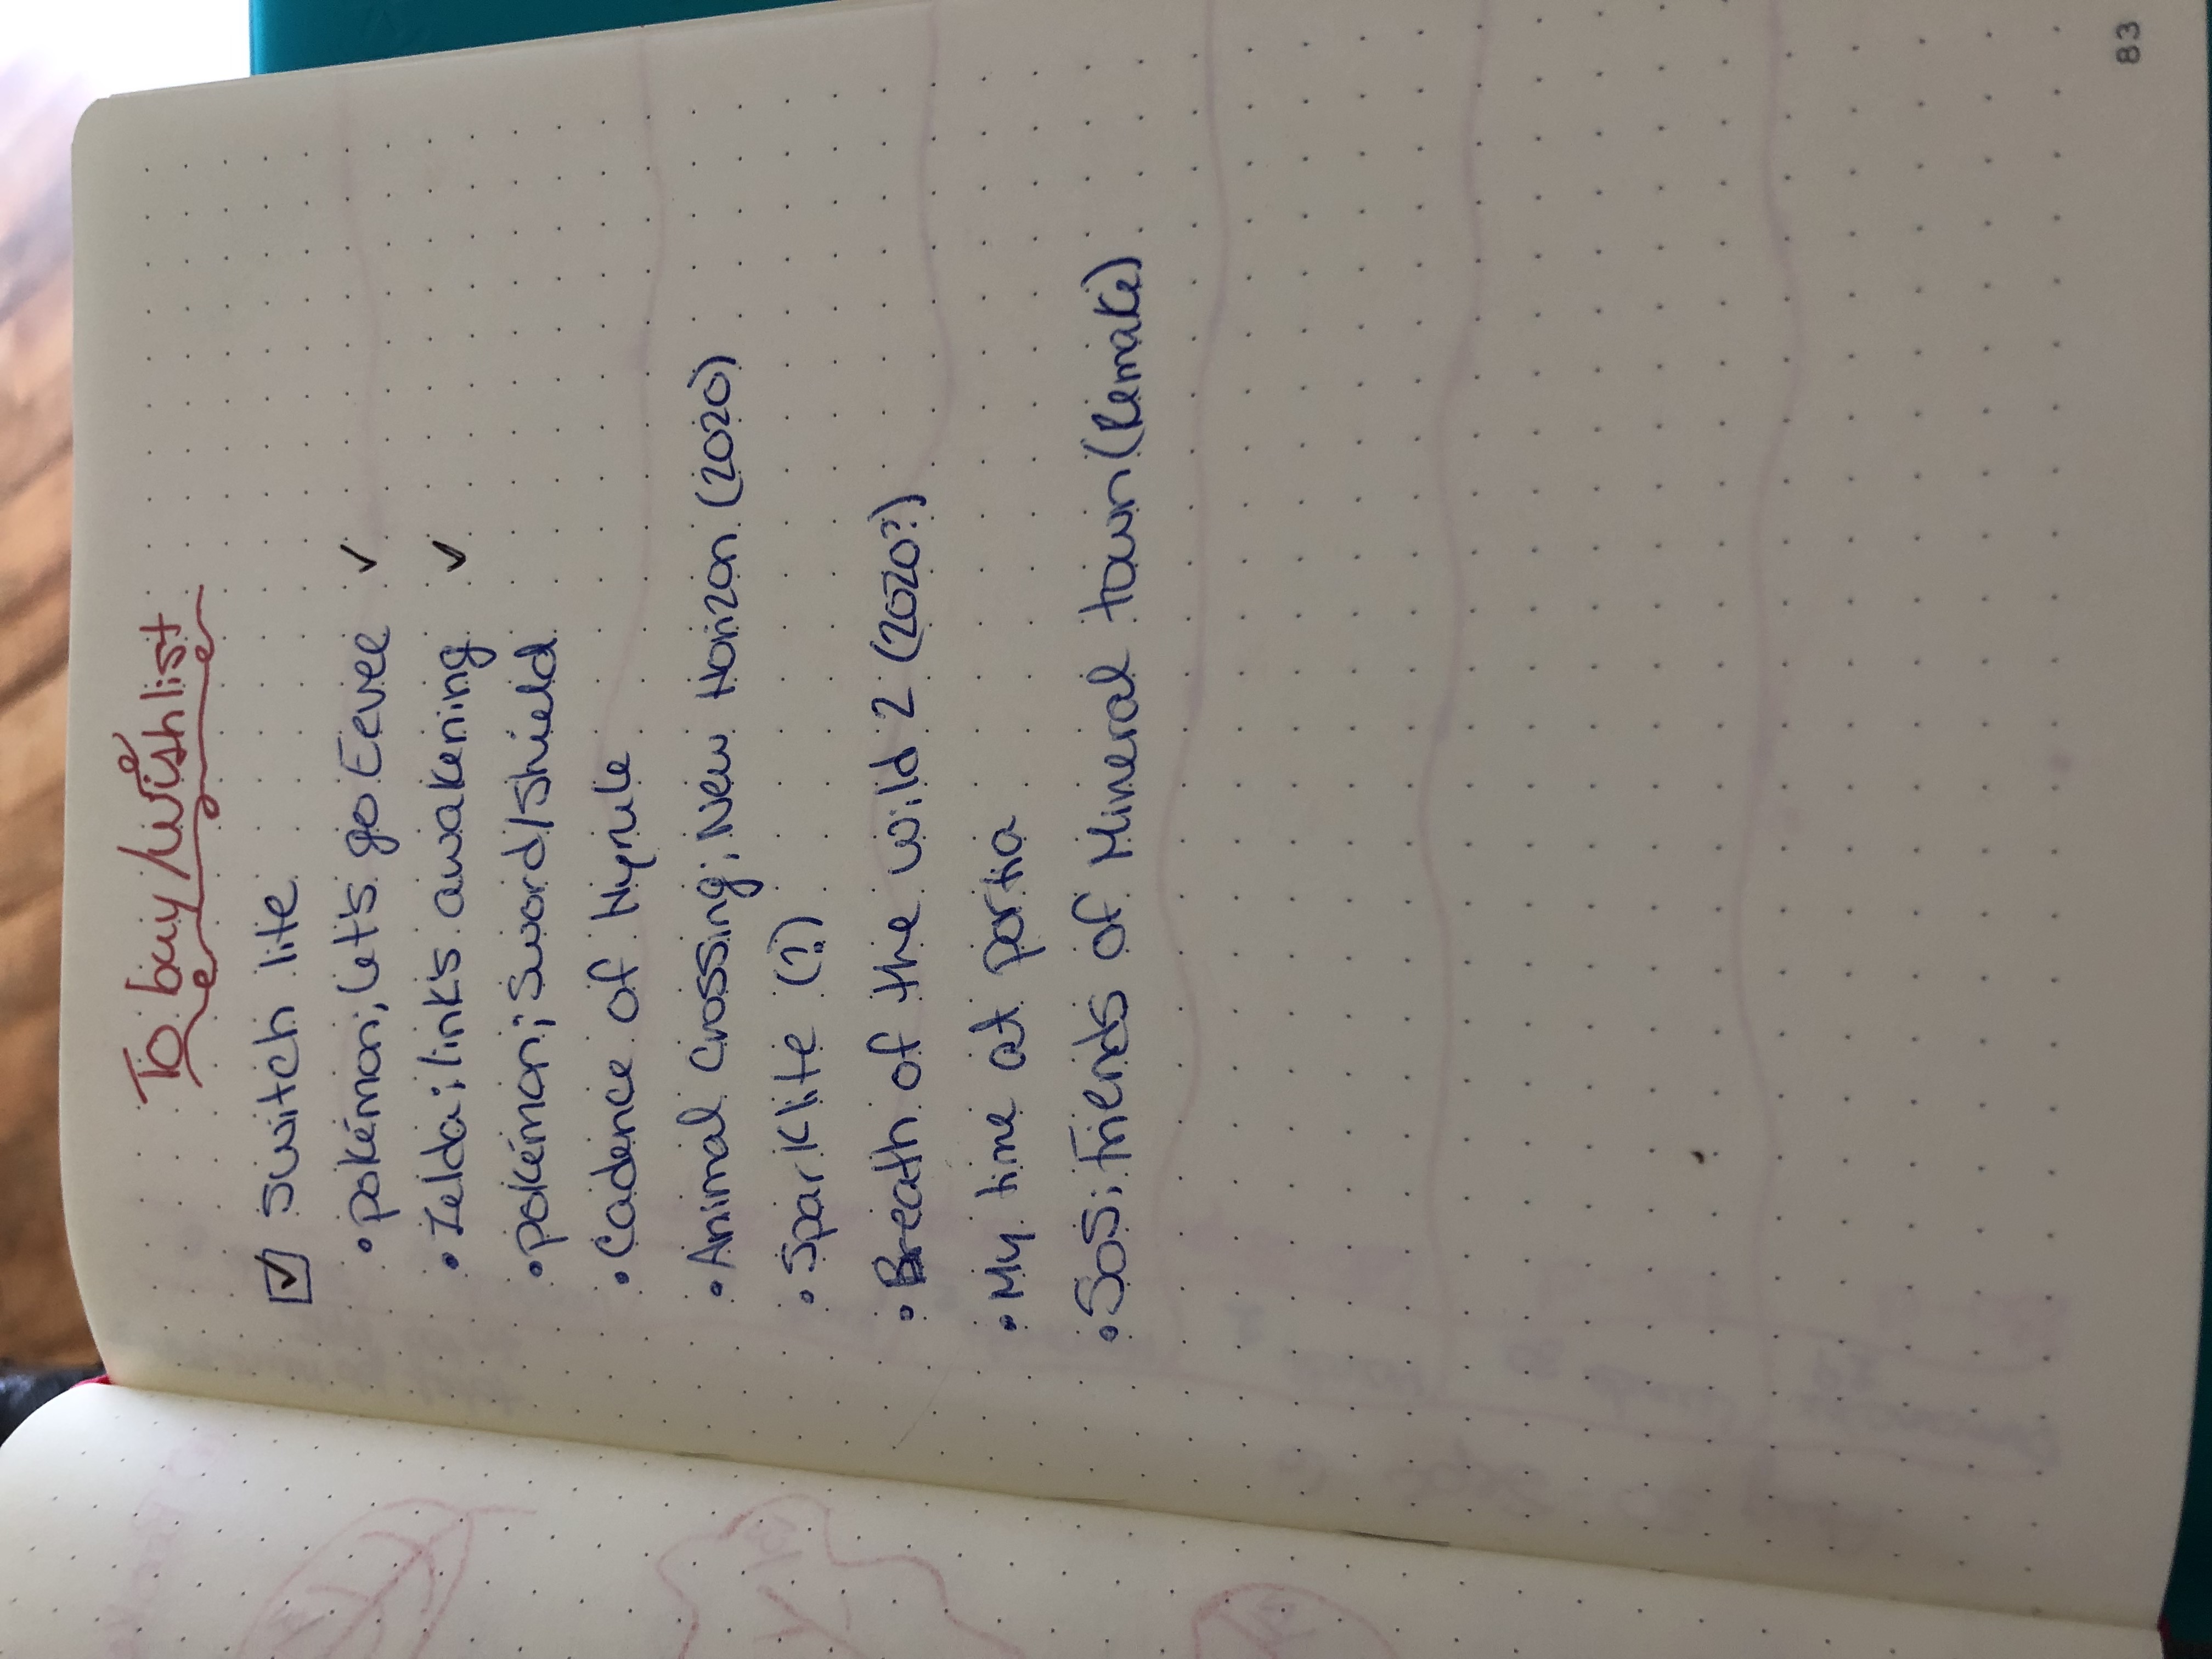 To buy/Wishlist
☑ Switch lite
• pokémon; let's go Eevee ✓
• Zelda; link's awakening ✓
• pokémon; Sword/Shield
• Cadence of Hyrule
• Animal Crossing; New Horizon (2020)
• Sparklite (?)
• Breath of the wild 2 (2020?)
• My time at portia
• SoS; Friends of Mineral town (Remake)
83